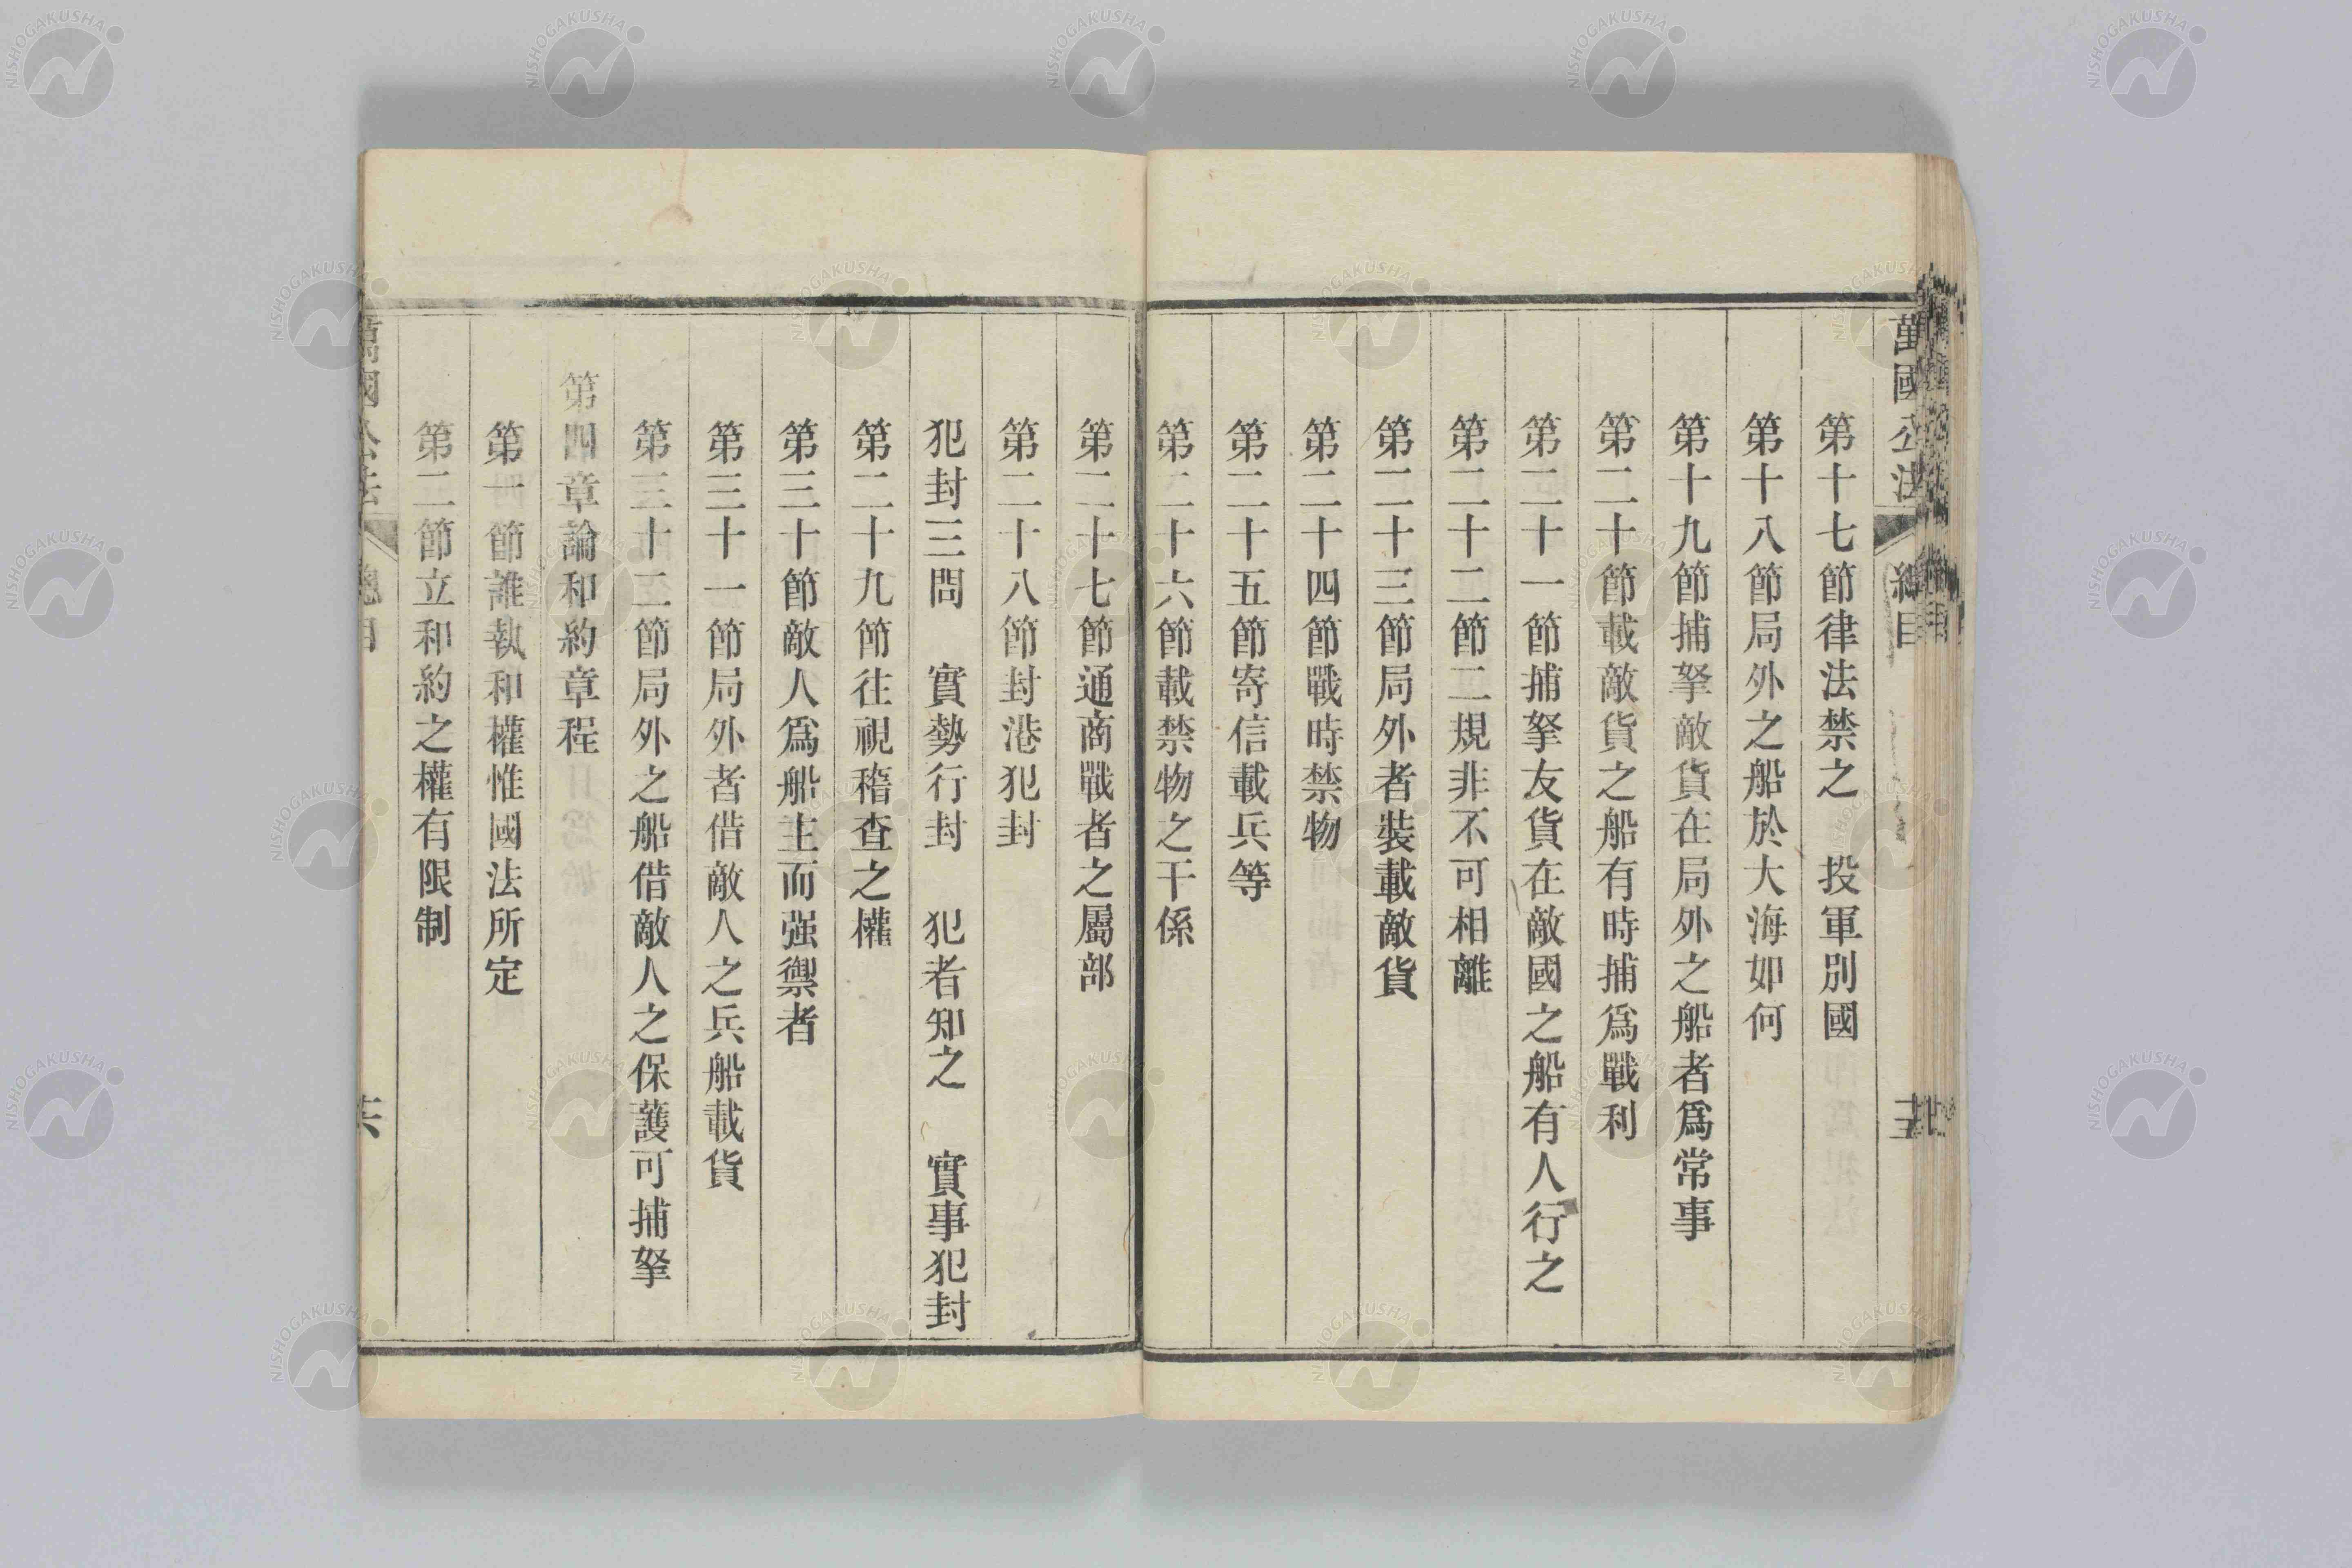 萬國公法 總目
第十七節律法禁之　投軍別國
第十八節局外之船於大海如何
第十九節捕拏敵貨在局外之船者爲常事
第二十節載敵貨之船有時捕爲戰利
第二十一節捕拏友貨在敵國之船有人行之
第二十二節二規非不可相離
第二十三節局外者裝載敵貨
第二十四節戰時禁物
第二十五節寄信載兵等
第二十六節載禁物之干係
第二十七節通商戰者之屬部
第二十八節封港犯封
犯封三問　實勢行封　犯者知之　實事犯封
第二十九節往視稽查之權
第三十節敵人爲船主而强禦者
第三十一節局外者借敵人之兵船載貨
第三十二節局外之船借敵人之保護可捕拏
第四章論和約章程
第一節誰執和權惟國法所定
第二節立和約之權有限制
萬國公法 總目
NISHOGAKUSHA